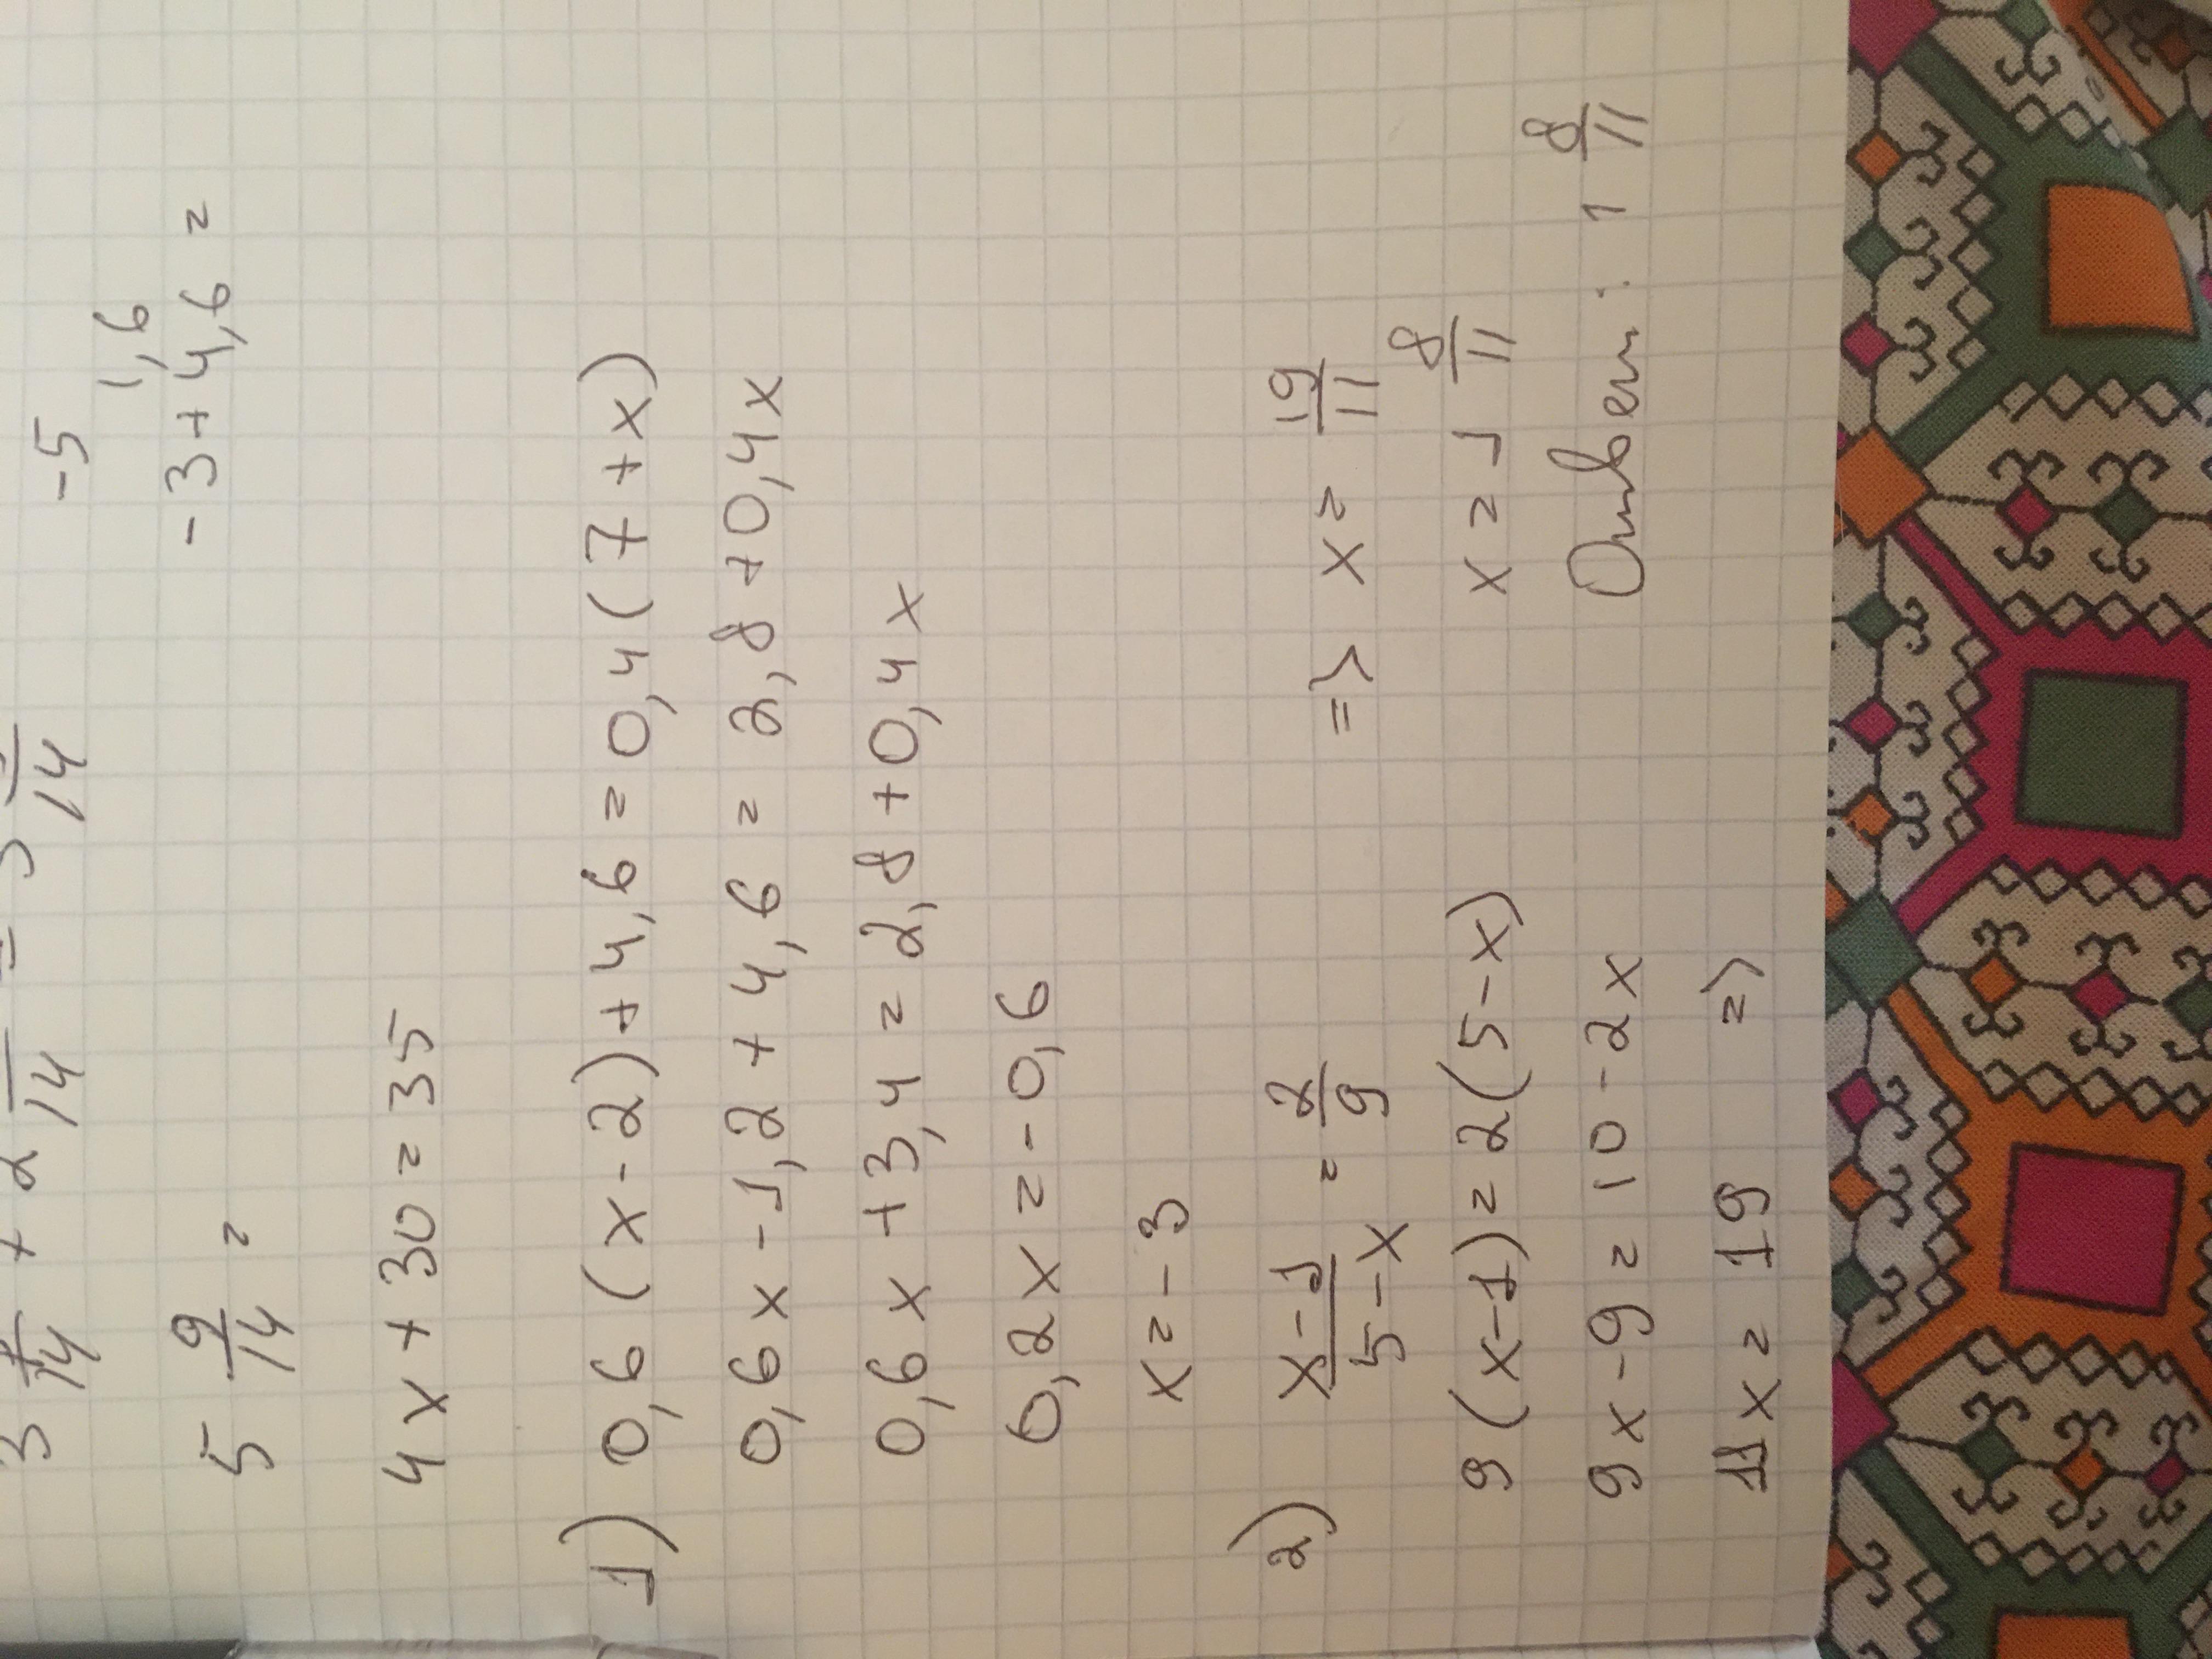 3 /14 + 2 /14 = 3 /14 -5
1,6
5 9/14 = -3+4,6=
4x+30=35
1) 0,6(x-2)+4,6=0,4(7+x)
0,6x-1,2+4,6=2,8+0,4x
0,6x+3,4=2,8+0,4x
0,2x=-0,6
x=-3
2) x-1/5-x = 2/9 => x= 19/11
9(x-1)=2(5-x) x=1 8/11
9x-9=10-2x Ответ: 1 8/11
11x=19 =>